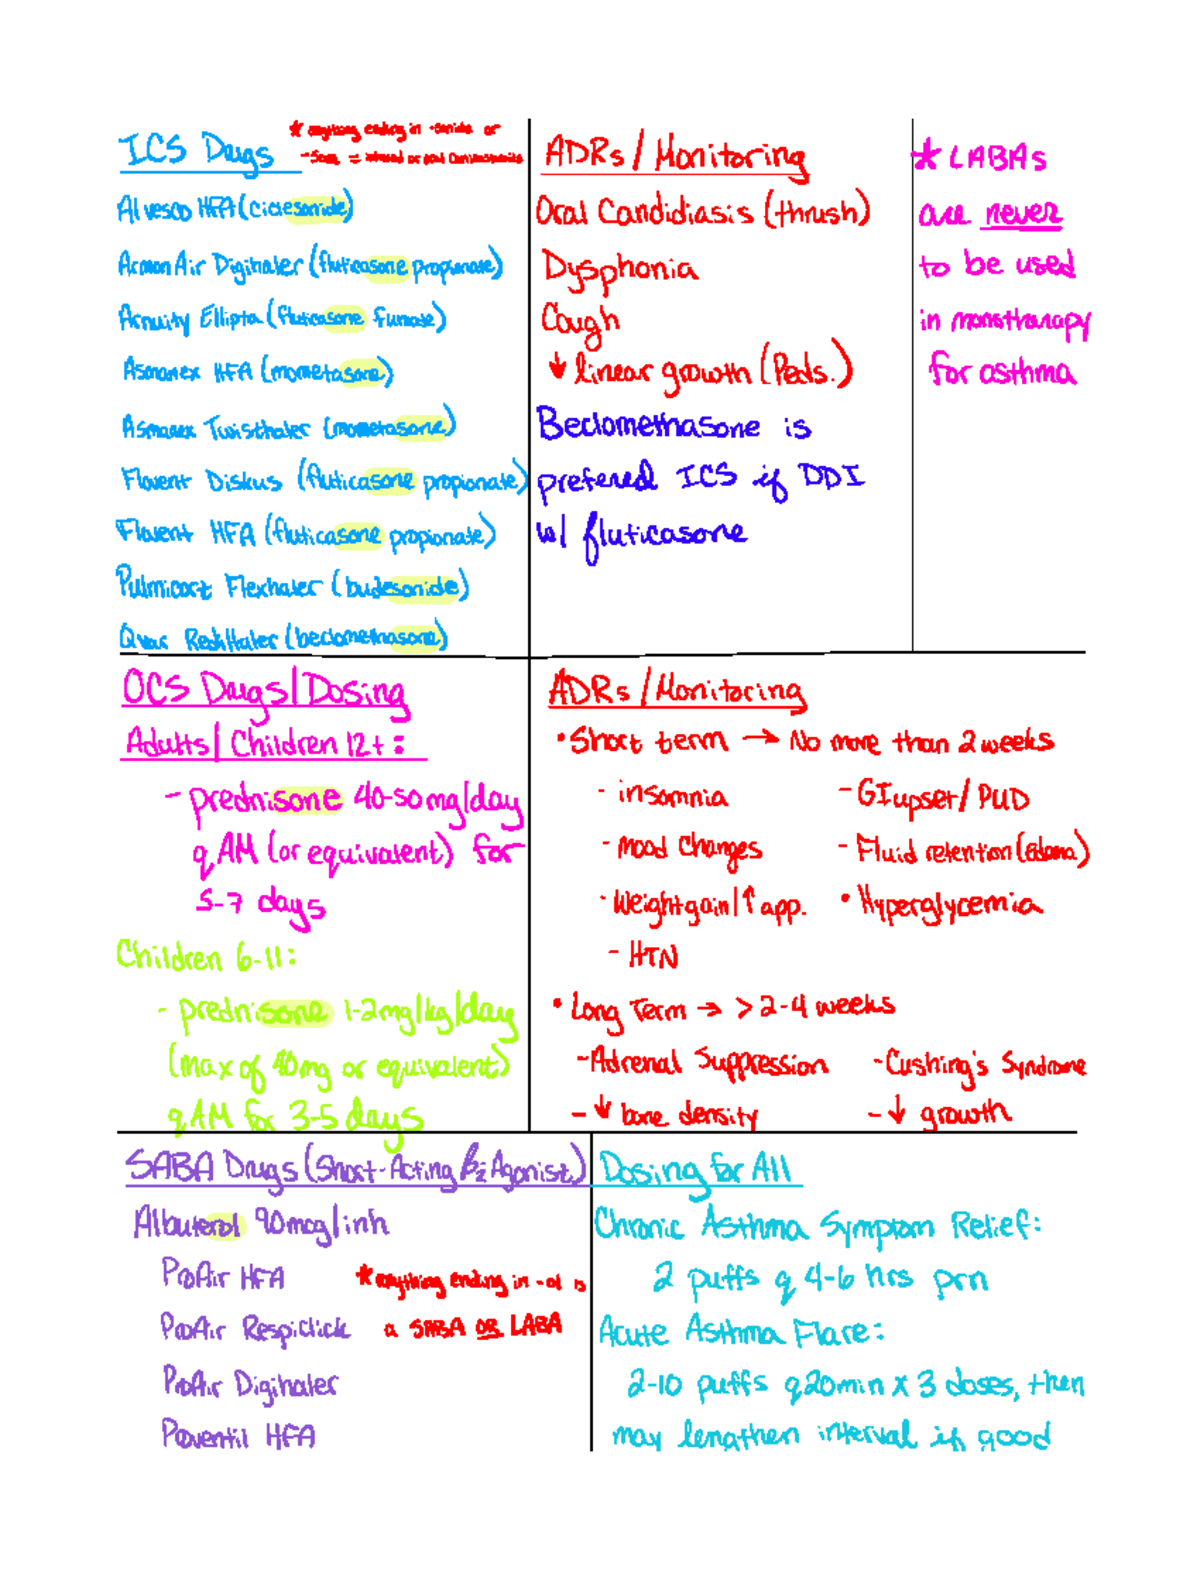 ICS Drugs
* anything ending in -sonide or
-sone = inhaled or oral corticosteroids
Alvesco HFA (ciclesonide)
ArmonAir Digihaler (fluticasone propionate)
Arnuity Ellipta (fluticasone furoate)
Asmanex HFA (mometasone)
Asmanex Twisthaler (mometasone)
Flovent Diskus (fluticasone propionate)
Flovent HFA (fluticasone propionate)
Pulmicort Flexhaler (budesonide)
Qvar RediHaler (beclomethasone)
ADRs / Monitoring
Oral Candidiasis (thrush)
Dysphonia
Cough
↓ linear growth (Peds.)
Beclomethasone is
prefered ICS if DDI
w/ fluticasone
* LABAs
are never
to be used
in monotherapy
for asthma
OCS Drugs/Dosing
Adults/Children 12+:
- prednisone 40-50mg/day
q AM (or equivalent) for
5-7 days
Children 6-11:
- prednisone 1-2mg/kg/day
(max of 40mg or equivalent)
q AM for 3-5 days
ADRs / Monitoring
• Short term → No more than 2 weeks
- insomnia - GI upset/ PUD
- Mood Changes - Fluid retention (edema)
- Weight gain/↑ app. • Hyperglycemia
- HTN
• Long Term → > 2-4 weeks
- Adrenal Suppression - Cushing's Syndrome
- ↓ bone density - ↓ growth
SABA Drugs (Short-Acting β2-Agonist)
Albuterol 90mcg/inh
ProAir HFA
ProAir Respiclick
ProAir Digihaler
Proventil HFA
* anything ending in -ol is
a SABA OR LABA
Dosing for All
Chronic Asthma Symptom Relief:
2 puffs q 4-6 hrs prn
Acute Asthma Flare:
2-10 puffs q20min x 3 doses, then
may lengthen interval if good